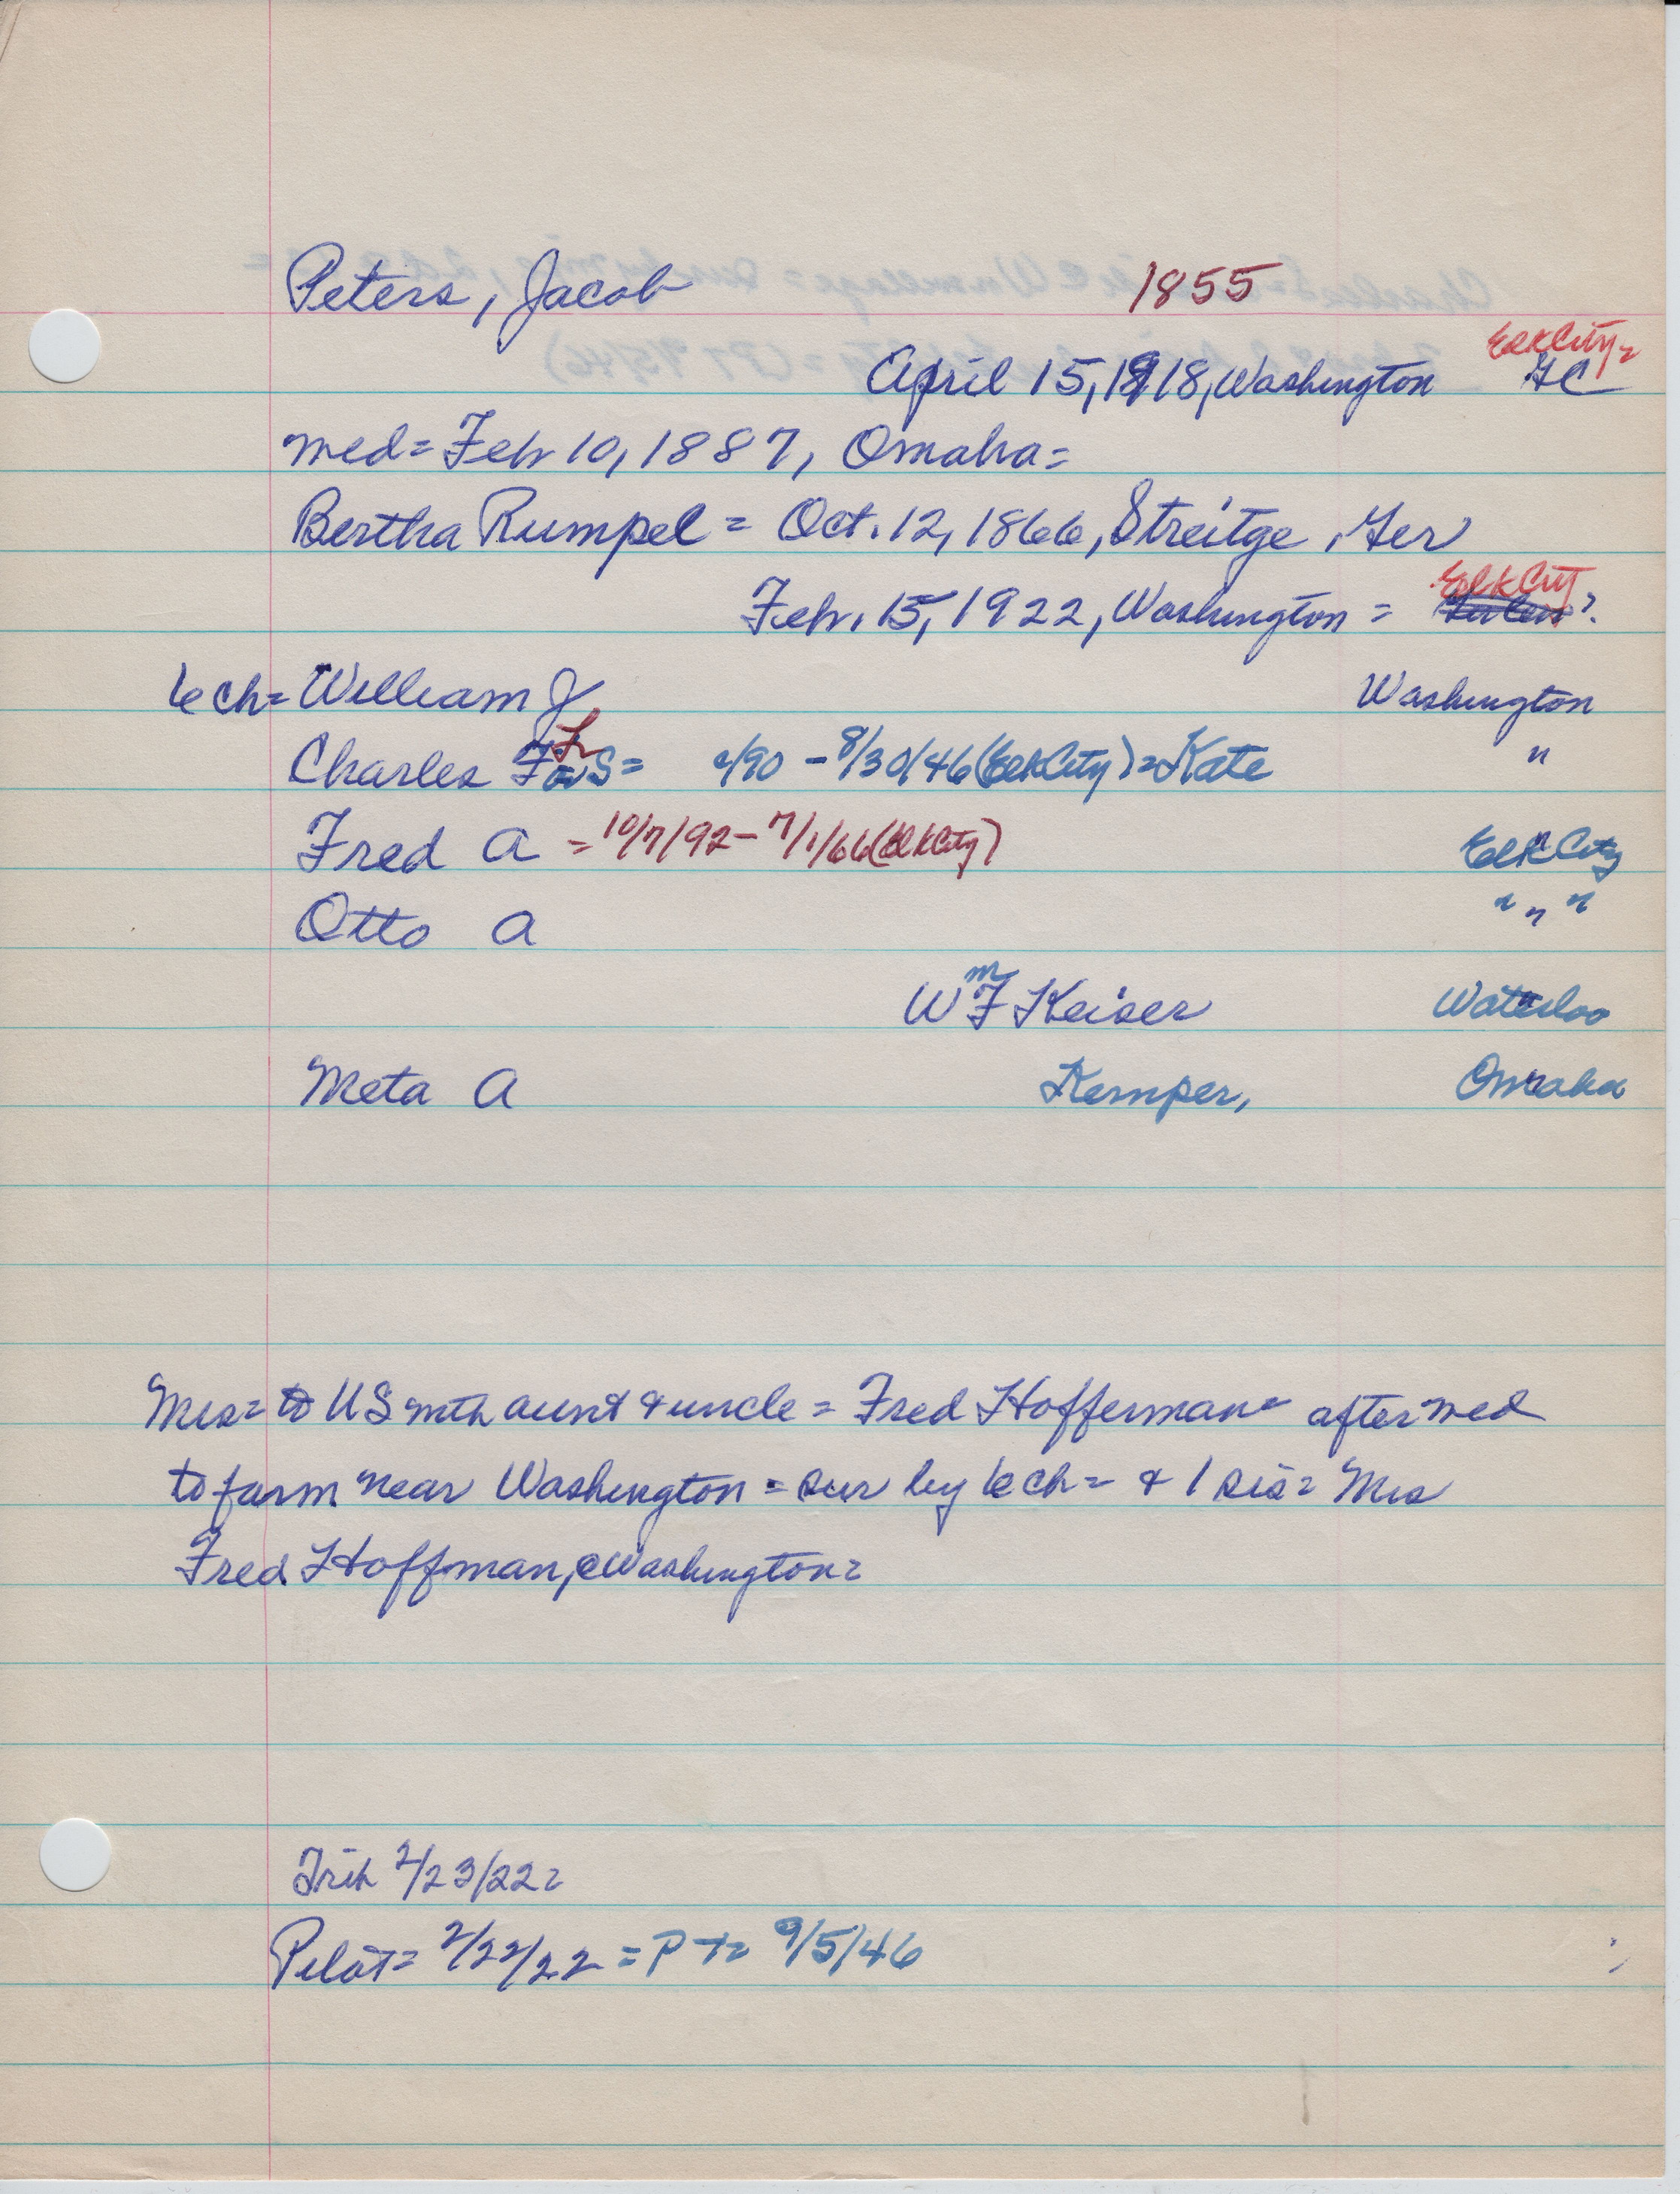 Peters, Jacob 1855
April 15, 1918, Washington Elk City =
med = Feb 10, 1887, Omaha =
Bertha Rumpel = Oct. 12, 1866, Streitge, Ger
Feb. 15, 1922, Washington = Elk City
6 ch = William J Washington
Charles S = /90 - 8/30/46 (Elk City) = Kate "
Fred A = 10/7/92 - 7/1/66 (Elk City) Elk City
Otto A " " "
Wm F Keiser Waterloo
Meta A Kemper, Omaha
Mrs = to US with aunt & uncle = Fred Hofferman = after med
to farm near Washington = sur by 6 ch = & 1 sis = Mrs
Fred Hoffman, Washington =
Trib 2/23/22 =
Pilot = 2/22/22 = P T = 9/5/46